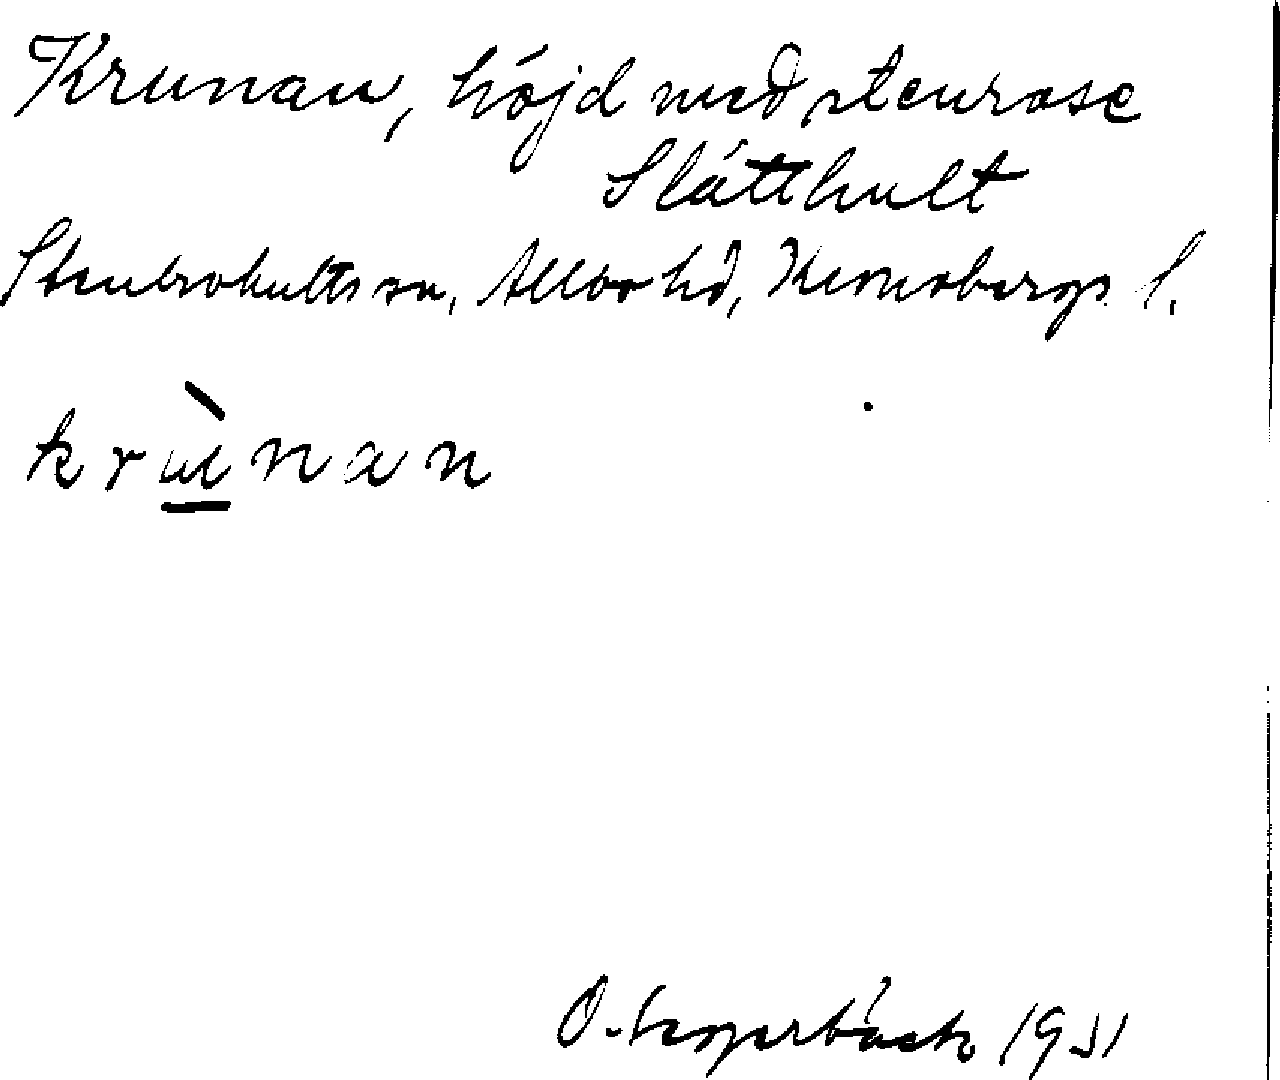 Krunan, höjd med stenrose
Slätthult
Stenbrohults sn, Allbo hd, Kronobergs l.
krùnan
O. Lagerbäck 1931